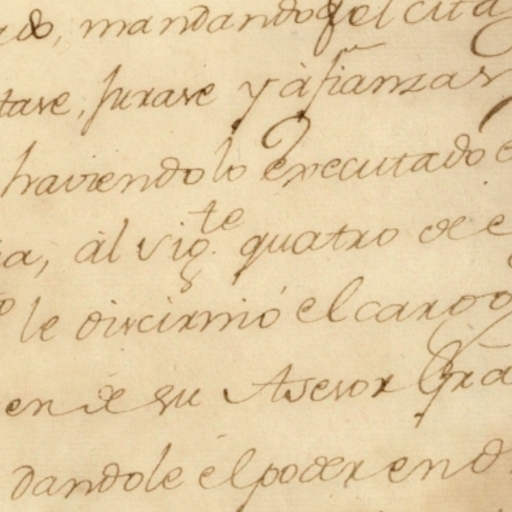 do, mandando q.e el cita
tase, jurase y àfianzas
haviendolo executado e
ia, àl vig.te quatro de e
le discirnió el cargo
en de su Asesor Gra
dandole él poder en d